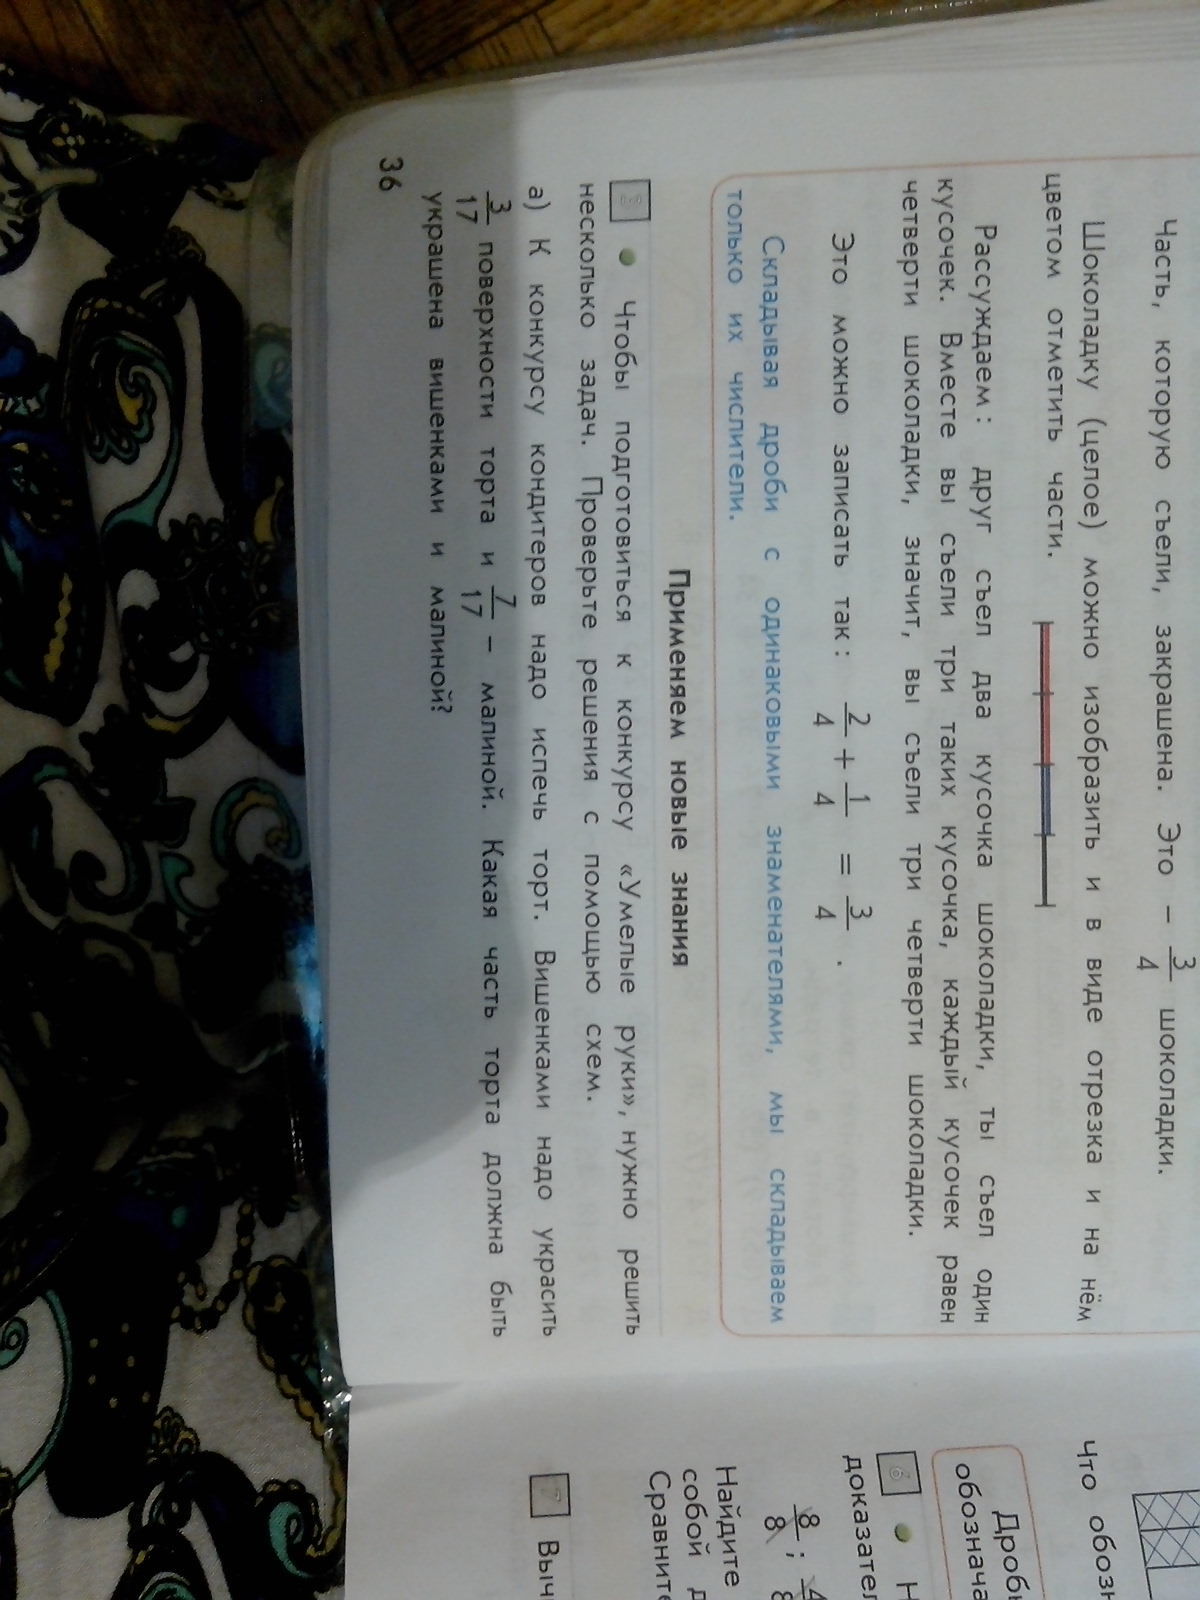 Часть, которую съели, закрашена. Это – 3/4 шоколадки.
Шоколадку (целое) можно изобразить и в виде отрезка и на нём
цветом отметить части.
Рассуждаем: друг съел два кусочка шоколадки, ты съел один
кусочек. Вместе вы съели три таких кусочка, каждый кусочек равен
четверти шоколадки, значит, вы съели три четверти шоколадки.
Это можно записать так: 2/4 + 1/4 = 3/4.
Складывая дроби с одинаковыми знаменателями, мы складываем
только их числители.
Применяем новые знания
5 • Чтобы подготовиться к конкурсу «Умелые руки», нужно решить
несколько задач. Проверьте решения с помощью схем.
а) К конкурсу кондитеров надо испечь торт. Вишенками надо украсить
3/17 поверхности торта и 7/17 – малиной. Какая часть торта должна быть
украшена вишенками и малиной?
36
Что
Дробь
6 •
8/8;
Найдите
собой
7